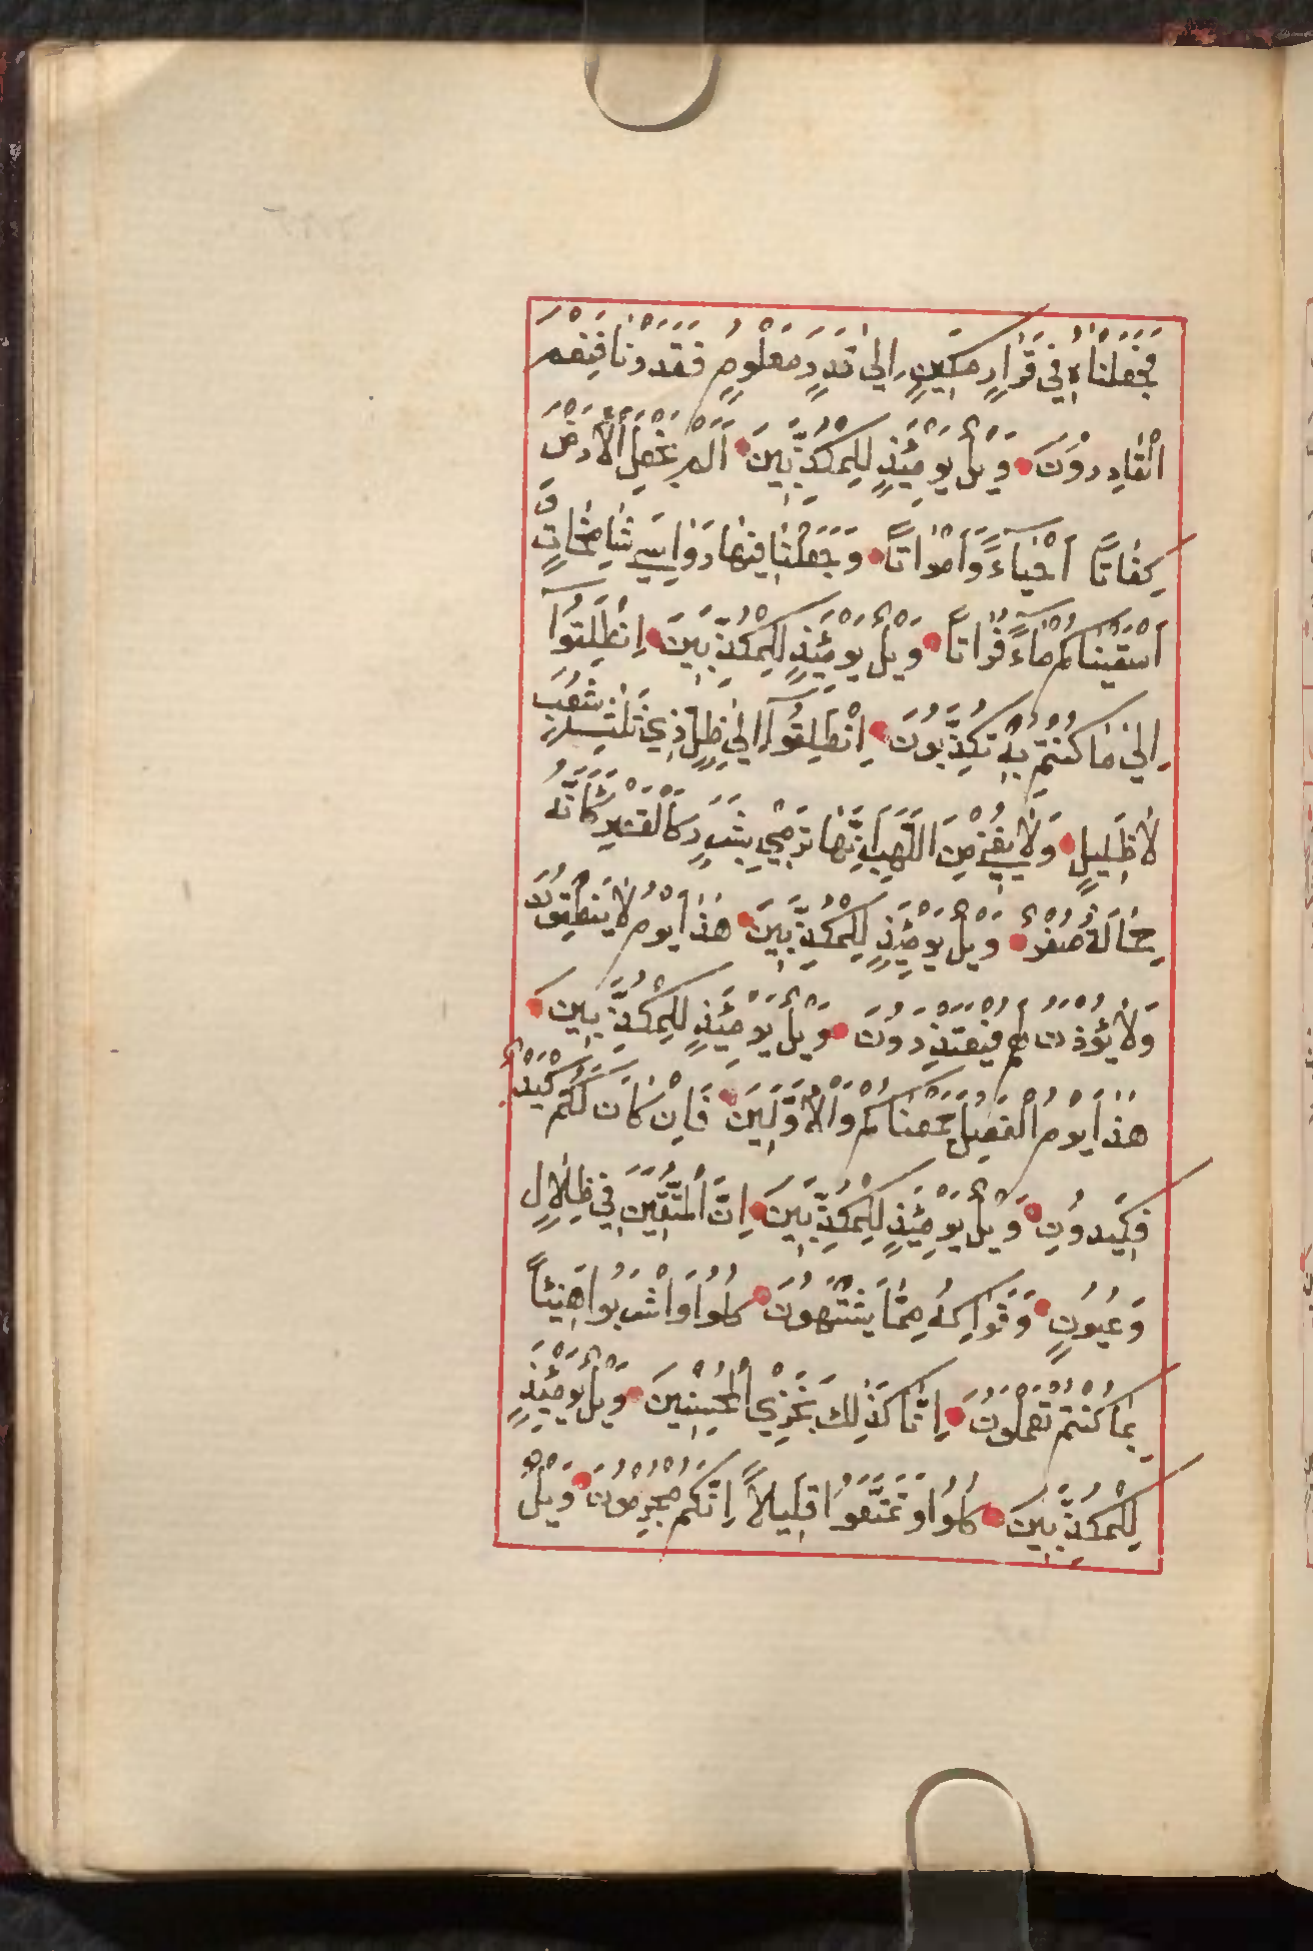 فَجَعَلْنَاهُ فِي قَرَارٍ مَكِينٍ اِلَى قَدَرٍ مَعْلُومٍ فَقَدَرْنَا فَنِعْمَ
الْقَادِرُونَ وَيْلٌ يَوْمَئِذٍ لِلْمُكَذِّبِينَ اَلَمْ نَجْعَلِ الْاَرْضَ
كِفَاتًا اَحْيَاءً وَاَمْوَاتًا وَجَعَلْنَا فِيهَا رَوَاسِيَ شَامِخَاتٍ وَ
اَسْقَيْنَاكُمْ مَاءً فُرَاتًا وَيْلٌ يَوْمَئِذٍ لِلْمُكَذِّبِينَ اِنْطَلِقُوا
اِلَى مَا كُنْتُمْ بِهِ تُكَذِّبُونَ اِنْطَلِقُوا اِلَى ظِلٍّ ذِي ثَلٰثِ شُعَبٍ
لَا ظَلِيلٍ وَلَا يُغْنِي مِنَ اللَّهَبِ اِنَّهَا تَرْمِي بِشَرَرٍ كَالْقَصْرِ كَاَنَّهُ
جِمَالَةٌ صُفْرٌ وَيْلٌ يَوْمَئِذٍ لِلْمُكَذِّبِينَ هَذَا يَوْمُ لَا يَنْطِقُونَ
وَلَا يُؤْذَنُ لَهُمْ فَيَعْتَذِرُونَ وَيْلٌ يَوْمَئِذٍ لِلْمُكَذِّبِينَ
هَذَا يَوْمُ الْفَصْلِ جَمَعْنَاكُمْ وَالْاَوَّلِينَ فَاِنْ كَانَ لَكُمْ كَيْدٌ
فَكِيدُونِ وَيْلٌ يَوْمَئِذٍ لِلْمُكَذِّبِينَ اِنَّ الْمُتَّقِينَ فِي ظِلَالٍ
وَعُيُونٍ وَفَوَاكِهَ مِمَّا يَشْتَهُونَ كُلُوا وَاشْرَبُوا هَنِيئًا
بِمَا كُنْتُمْ تَعْمَلُونَ اِنَّا كَذَلِكَ نَجْزِي الْمُحْسِنِينَ وَيْلٌ يَوْمَئِذٍ
لِلْمُكَذِّبِينَ كُلُوا وَتَمَتَّعُوا قَلِيلًا اِنَّكُمْ مُجْرِمُونَ وَيْلٌ